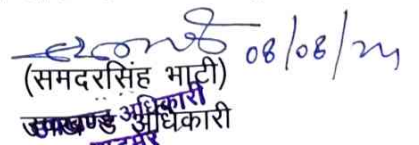 08/08/24
(समदरसिंह भाटी)
उपखण्ड अधिकारी
बाड़मेर